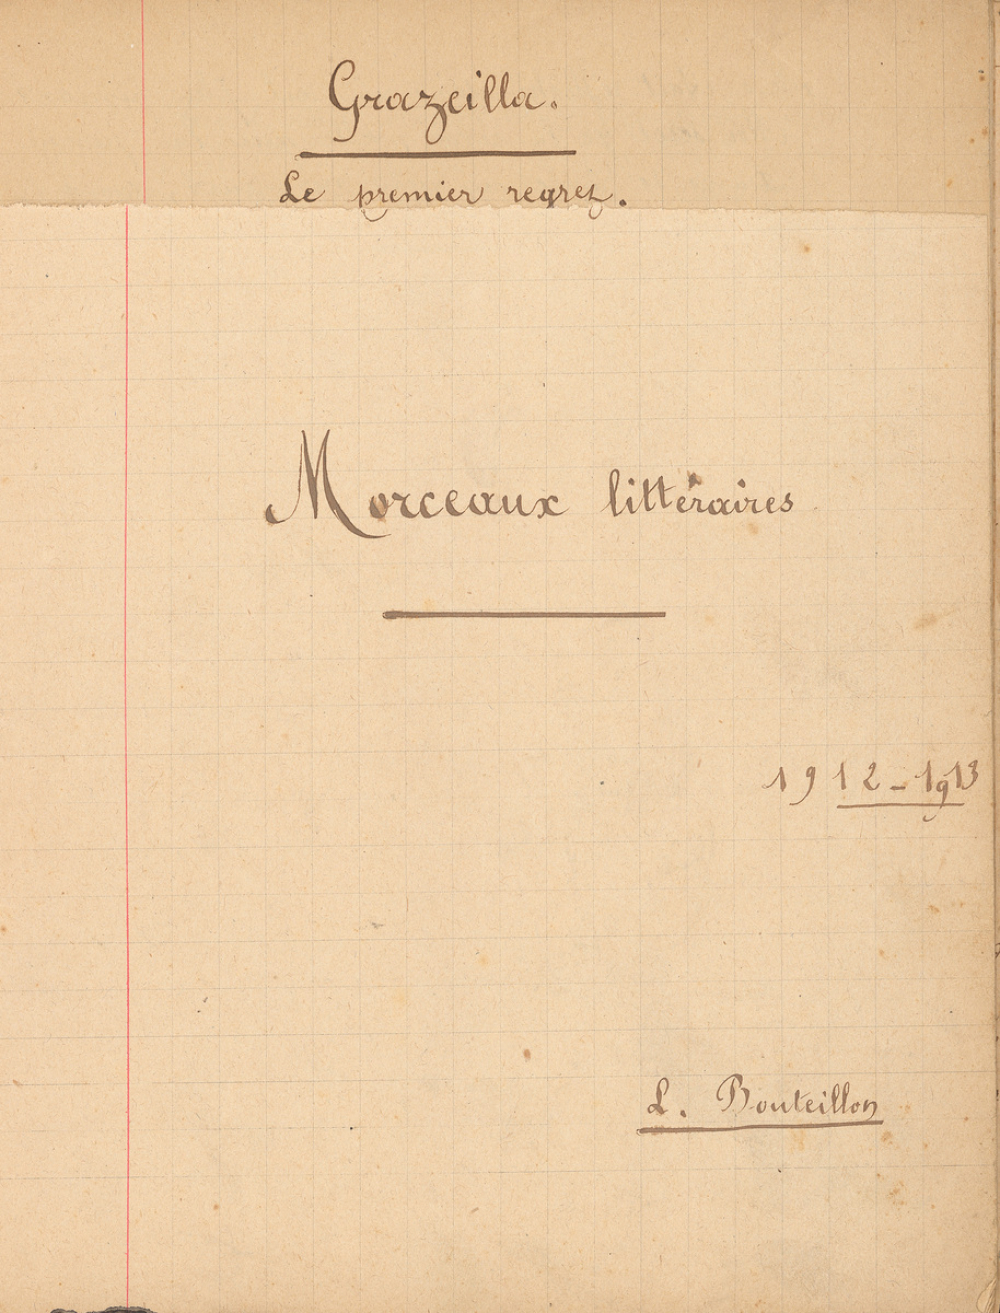 Grazeilla.
Le premier regret.
Morceaux littéraires
1912-1913
L. Bouteillon